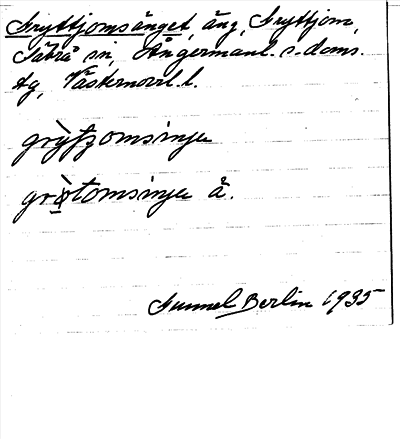 Gryttjomsänget, äng, Gryttjom,
Säbrå sn, Ångermanl. s. doms.
tg, Västernorrl. l.
grỳtjomsinje
gròtomsinje å.
Gunnel Berlin 1935